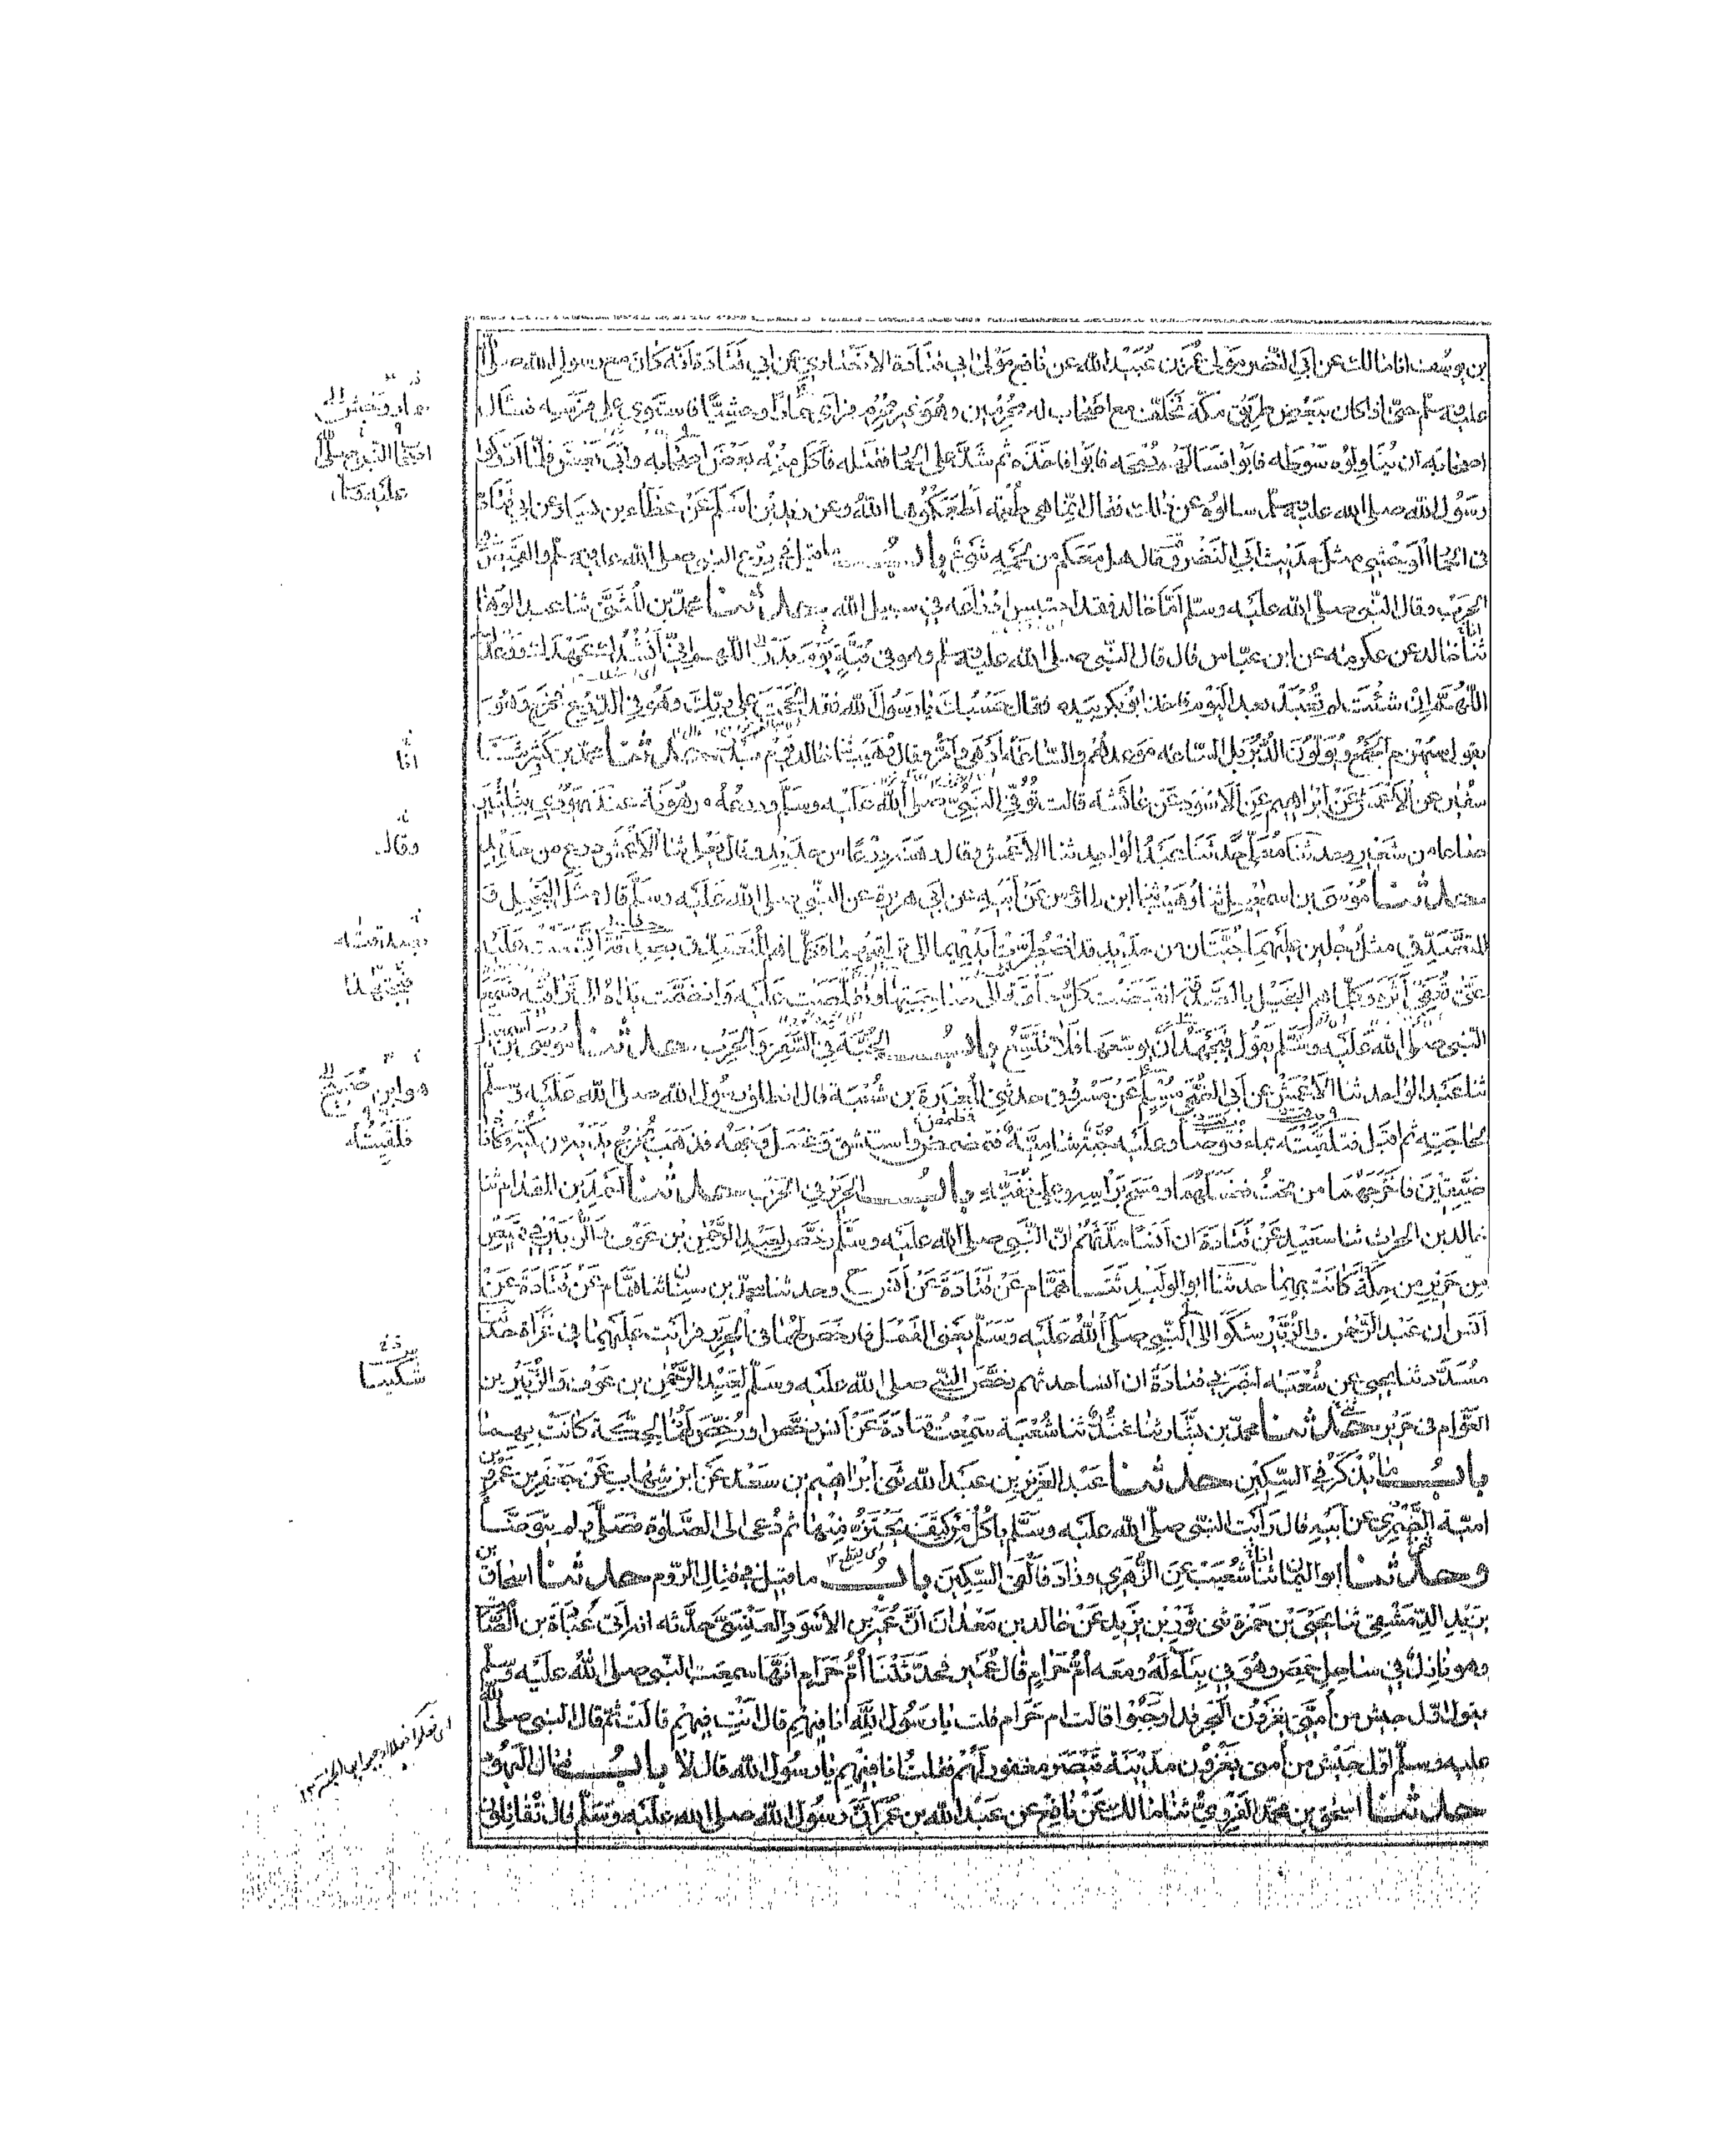 بن يوسف انا مالك عن ابي النضر مولى عمر بن عبيد الله عن نافع مولى ابي قتادة الانصاري عن ابي قتادة انه كان مع رسول الله صلى الله
عليه وسلم حتى اذا كان ببعض طريق مكة تخلف مع اصحاب له محرمين وهو غير محرم فراى حمارا وحشيا فاستوى على فرسه فسال
اصحابه ان يناولوه سوطه فابوا فسالهم رمحه فابوا فاخذه ثم شد على الحمار فقتله فاكل منه بعض اصحابه وابى بعض فلما ادركوا
رسول الله صلى الله عليه وسلم سالوه عن ذلك فقال انما هي طعمة اطعمكموها الله وعن زيد بن اسلم عن عطاء بن يسار عن ابي قتادة
في الحمار الوحشي مثل حديث ابي النضر وقال هل معكم من لحمه شئ باب ما قيل في درع النبي صلى الله عليه وسلم والقميص في
الحرب وقال النبي صلى الله عليه وسلم اما خالد فقد احتبس ادراعه في سبيل الله حدثنا محمد بن المثنى ثنا عبد الوهاب
ثنا خالد عن عكرمة عن ابن عباس قال قال النبي صلى الله عليه وسلم وهو في قبة يوم بدر اللهم اني انشدك عهدك ووعدك
اللهم ان شئت لم تعبد بعد اليوم فاخذ ابو بكر بيده فقال حسبك يا رسول الله فقد الححت على ربك وهو في الدرع فخرج وهو
يقول سيهزم الجمع ويولون الدبر بل الساعة موعدهم والساعة ادهى وامر وقال وهيب ثنا خالد يوم بدر حدثنا محمد بن كثير ثنا
سفيان عن الاعمش عن ابراهيم عن الاسود عن عائشة قالت توفي النبي صلى الله عليه وسلم ودرعه مرهونة عند يهودي بثلثين
صاعا من شعير وحدثنا معلى حدثنا عبد الواحد ثنا الاعمش وقال رهنه درعا من حديد وقال يعلى ثنا الاعمش درع من حديد
حدثنا موسى بن اسمعيل ثنا وهيب ثنا ابن طاوس عن ابيه عن ابي هريرة عن النبي صلى الله عليه وسلم قال مثل البخيل و
المتصدق مثل رجلين عليهما جبتان من حديد قد اضطرت ايديهما الى تراقيهما فكلما هم المتصدق بصدقة اتسعت عليه
حتى تعفي اثره وكلما هم البخيل بالصدقة انقبضت كل حلقة الى صاحبتها وتقلصت عليه وانضمت يداه الى تراقيه فسمع
النبي صلى الله عليه وسلم يقول فيجتهد ان يوسعها فلا تتسع باب الجبة في السفر والحرب حدثنا موسى بن اسمعيل
ثنا عبد الواحد ثنا الاعمش عن ابي الضحى مسلم عن مسروق حدثني المغيرة بن شعبة قال انطلق رسول الله صلى الله عليه وسلم
لحاجته ثم اقبل فتلقيته بماء فتوضا وعليه جبة شامية فمضمض واستنشق وغسل وجهه فذهب يخرج يديه من كميه وكانا
ضيقين فاخرجهما من تحت فغسلهما ومسح براسه وعلى خفيه باب الحرير في الحرب حدثنا احمد بن المقدام ثنا
خالد بن الحرث ثنا سعيد عن قتادة ان انسا حدثهم ان النبي صلى الله عليه وسلم رخص لعبد الرحمن بن عوف والزبير في قميص
من حرير من حكة كانت بهما حدثنا ابو الوليد ثنا همام عن قتادة عن انس ح وحدثنا محمد بن سنان ثنا همام عن قتادة عن
انس ان عبد الرحمن والزبير شكوا الى النبي صلى الله عليه وسلم يعني القمل فارخص لهما في الحرير فرايت عليهما في غزاة حدثنا
مسدد ثنا يحيى عن شعبة اخبرني قتادة ان انسا حدثهم رخص النبي صلى الله عليه وسلم لعبد الرحمن بن عوف والزبير بن
العوام في حرير حدثنا محمد بن بشار ثنا غندر ثنا شعبة سمعت قتادة عن انس رخص او رخص لهما لحكة كانت بهما
باب ما يذكر في السكين حدثنا عبد العزيز بن عبد الله ثنى ابراهيم بن سعد عن ابن شهاب عن جعفر بن عمرو بن
امية الضمري عن ابيه قال رايت النبي صلى الله عليه وسلم ياكل من كتف يحتز منها ثم دعى الى الصلوة فصلى ولم يتوضا
وحدثنا ابو اليمان ثنا شعيب عن الزهري وزاد فالقى السكين باب ما قيل في قتال الروم حدثنا اسحاق بن
يزيد الدمشقي ثنا يحيى بن حمزة ثنى ثور بن يزيد عن خالد بن معدان ان عمير بن الاسود العنسي حدثه انه اتى عبادة بن الصامت
وهو نازل في ساحل حمص وهو في بناء له ومعه ام حرام قال عمير فحدثتنا ام حرام انها سمعت النبي صلى الله عليه وسلم
يقول اول جيش من امتي يغزون البحر قد اوجبوا قالت ام حرام قلت يا رسول الله انا فيهم قال انت فيهم قالت ثم قال النبي صلى الله
عليه وسلم اول جيش من امتي يغزون مدينة قيصر مغفور لهم فقلت انا فيهم يا رسول الله قال لا باب قتال اليهود
حدثنا اسحق بن محمد الفروي ثنا مالك عن نافع عن عبد الله بن عمر ان رسول الله صلى الله عليه وسلم قال تقاتلون
اصحاب النبي صلى الله
عليه وسلم
انا
وقال
بصدقته
هو ابن صبيح
فلقيته
شكيا